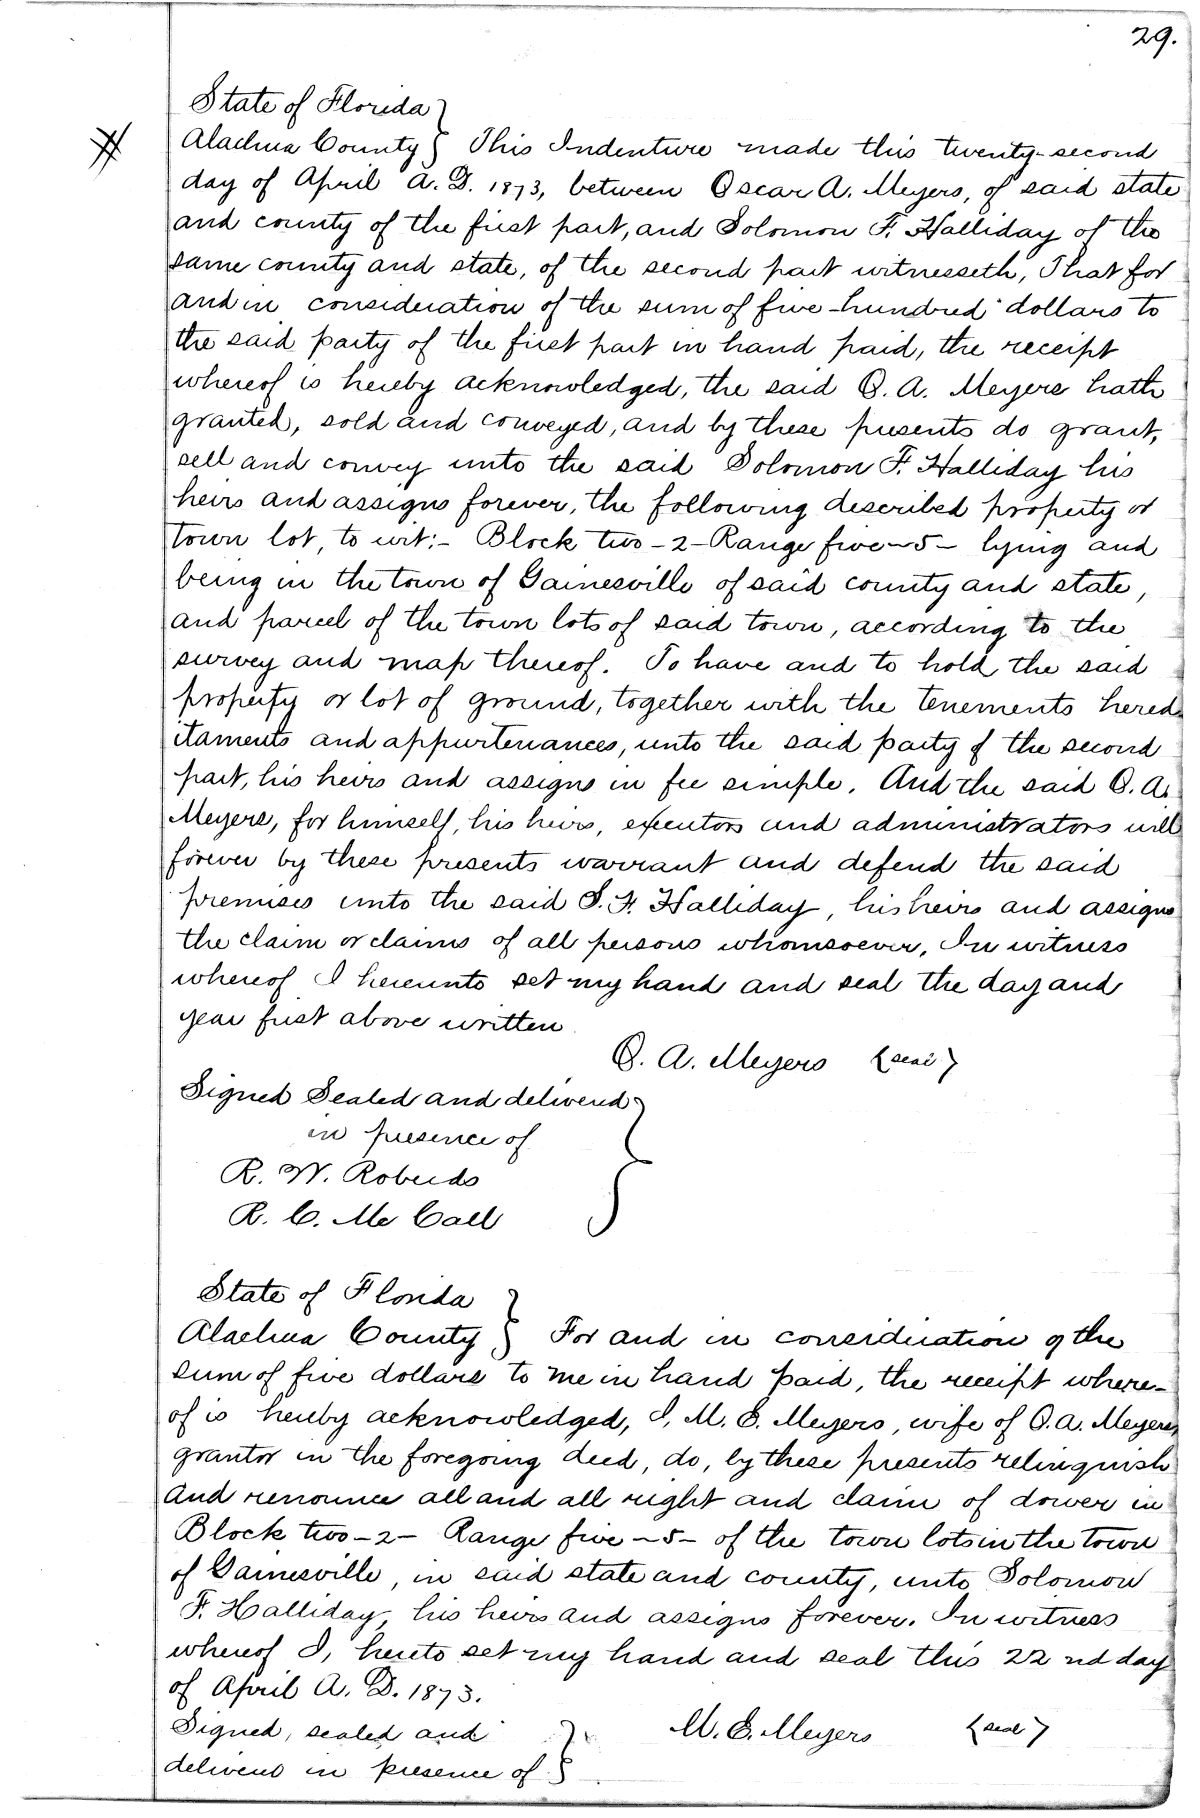 29.
State of Florida }
Alachua County } This Indenture made this twenty-second
day of April A.D. 1873, between Oscar A. Meyers, of said state
and county of the first part, and Solomon F. Halliday of the
same county and state, of the second part witnesseth, That for
and in consideration of the sum of five-hundred dollars to
the said party of the first part in hand paid, the receipt
whereof is hereby acknowledged, the said O. A. Meyers hath
granted, sold and conveyed, and by these presents do grant,
sell and convey unto the said Solomon F. Halliday his
heirs and assigns forever, the following described property or
town lot, to wit:- Block two -2- Range five -5- lying and
being in the town of Gainesville of said county and state,
and parcel of the town lots of said town, according to the
survey and map thereof. To have and to hold the said
property or lot of ground, together with the tenements hered-
itaments and appurtenances, unto the said party of the second
part, his heirs and assigns in fee simple. And the said O. A.
Meyers, for himself, his heirs, executors and administrators will
forever by these presents warrant and defend the said
premises unto the said S. F. Halliday, his heirs and assigns
the claim or claims of all persons whomsoever, In witness
whereof I hereunto set my hand and seal the day and
year first above written
O. A. Meyers {seal}
Signed Sealed and delivered }
in presence of
R. W. Roberds
R. C. Mc Call
State of Florida }
Alachua County } For and in consideration of the
sum of five dollars to me in hand paid, the receipt where-
of is hereby acknowledged, I, M. E. Meyers, wife of O. A. Meyers
grantor in the foregoing deed, do, by these presents relinquish
and renounce all and all right and claim of dower in
Block two -2- Range five -5- of the town lots in the town
of Gainesville, in said state and county, unto Solomon
F. Halliday, his heirs and assigns forever. In witness
whereof I, hereto set my hand and seal this 22nd day
of April A. D. 1873.
Signed, sealed and } M. E. Meyers {seal}
delivered in presence of }